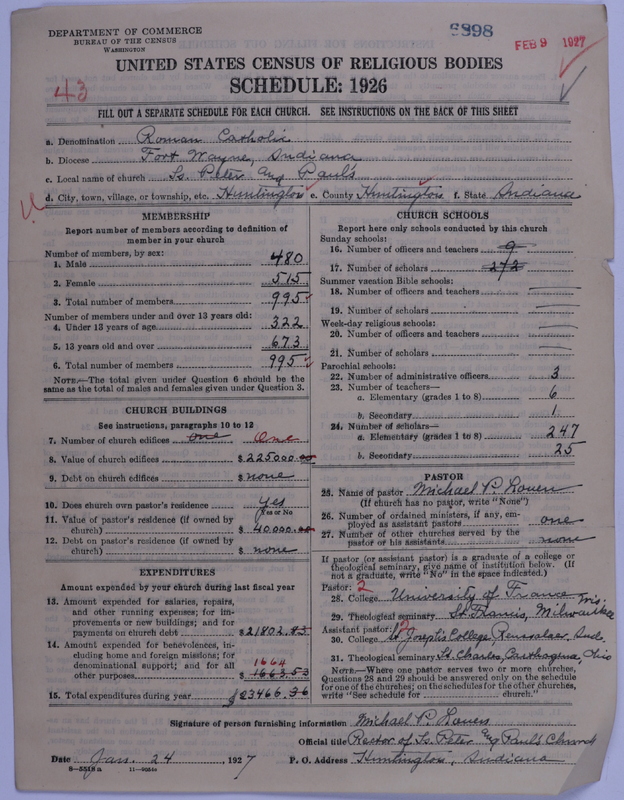 DEPARTMENT OF COMMERCE
BUREAU OF THE CENSUS
WASHINGTON
5898
FEB 9 1927
UNITED STATES CENSUS OF RELIGIOUS BODIES
SCHEDULE: 1926
43
FILL OUT A SEPARATE SCHEDULE FOR EACH CHURCH. SEE INSTRUCTIONS ON THE BACK OF THIS SHEET
a. Denomination Roman Catholic
b. Diocese Fort Wayne, Indiana
c. Local name of church Ss. Peter and Paul's
d. City, town, village, or township, etc. Huntington e. County Huntington f. State Indiana
MEMBERSHIP
Report number of members according to definition of
member in your church
Number of members, by sex:
1. Male 480
2. Female 515
3. Total number of members 995
Number of members under and over 13 years old:
4. Under 13 years of age 322
5. 13 years old and over 673
6. Total number of members 995
NOTE.—The total given under Question 6 should be the
same as the total of males and females given under Question 3.
CHURCH BUILDINGS
See instructions, paragraphs 10 to 12
7. Number of church edifices one One
8. Value of church edifices $225000.00
9. Debt on church edifices $ none
10. Does church own pastor's residence yes
Yes or No
11. Value of pastor's residence (if owned by
church) $ 40,000.00
12. Debt on pastor's residence (if owned by
church) $ none
EXPENDITURES
Amount expended by your church during last fiscal year
13. Amount expended for salaries, repairs,
and other running expenses; for im-
provements or new buildings; and for
payments on church debt $21802.83
14. Amount expended for benevolences, in-
cluding home and foreign missions; for
denominational support; and for all 1664
other purposes $ 1663.53
15. Total expenditures during year $23466.36
CHURCH SCHOOLS
Report here only schools conducted by this church
Sunday schools:
16. Number of officers and teachers 9
17. Number of scholars 272
Summer vacation Bible schools:
18. Number of officers and teachers
19. Number of scholars
Week-day religious schools:
20. Number of officers and teachers
21. Number of scholars
Parochial schools:
22. Number of administrative officers 3
23. Number of teachers—
a. Elementary (grades 1 to 8) 6
b. Secondary 1
24. Number of scholars—
a. Elementary (grades 1 to 8) 247
b. Secondary 25
PASTOR
25. Name of pastor Michael P. Louen
(If church has no pastor, write "None")
26. Number of ordained ministers, if any, em-
ployed as assistant pastors one
27. Number of other churches served by the
pastor or his assistants none
If pastor (or assistant pastor) is a graduate of a college or
theological seminary, give name of institution below. (If
not a graduate, write "No" in the space indicated.)
Pastor: 2
28. College University of France
29. Theological seminary St. Francis, Milwaukee Wis.
Assistant pastor: 2
30. College St. Joseph's College Rensselaer, Ind.
31. Theological seminary St. Charles, Carthagena, Ohio
NOTE.—Where one pastor serves two or more churches,
Questions 28 and 29 should be answered only on the schedule
for one of the churches; on the schedules for the other churches,
write "See schedule for church."
Signature of person furnishing information Michael P. Louen
Official title Rector of Ss. Peter and Paul's Church
Date Jan. 24, 1927 P. O. Address Huntington, Indiana
8—5518a 11—9054a